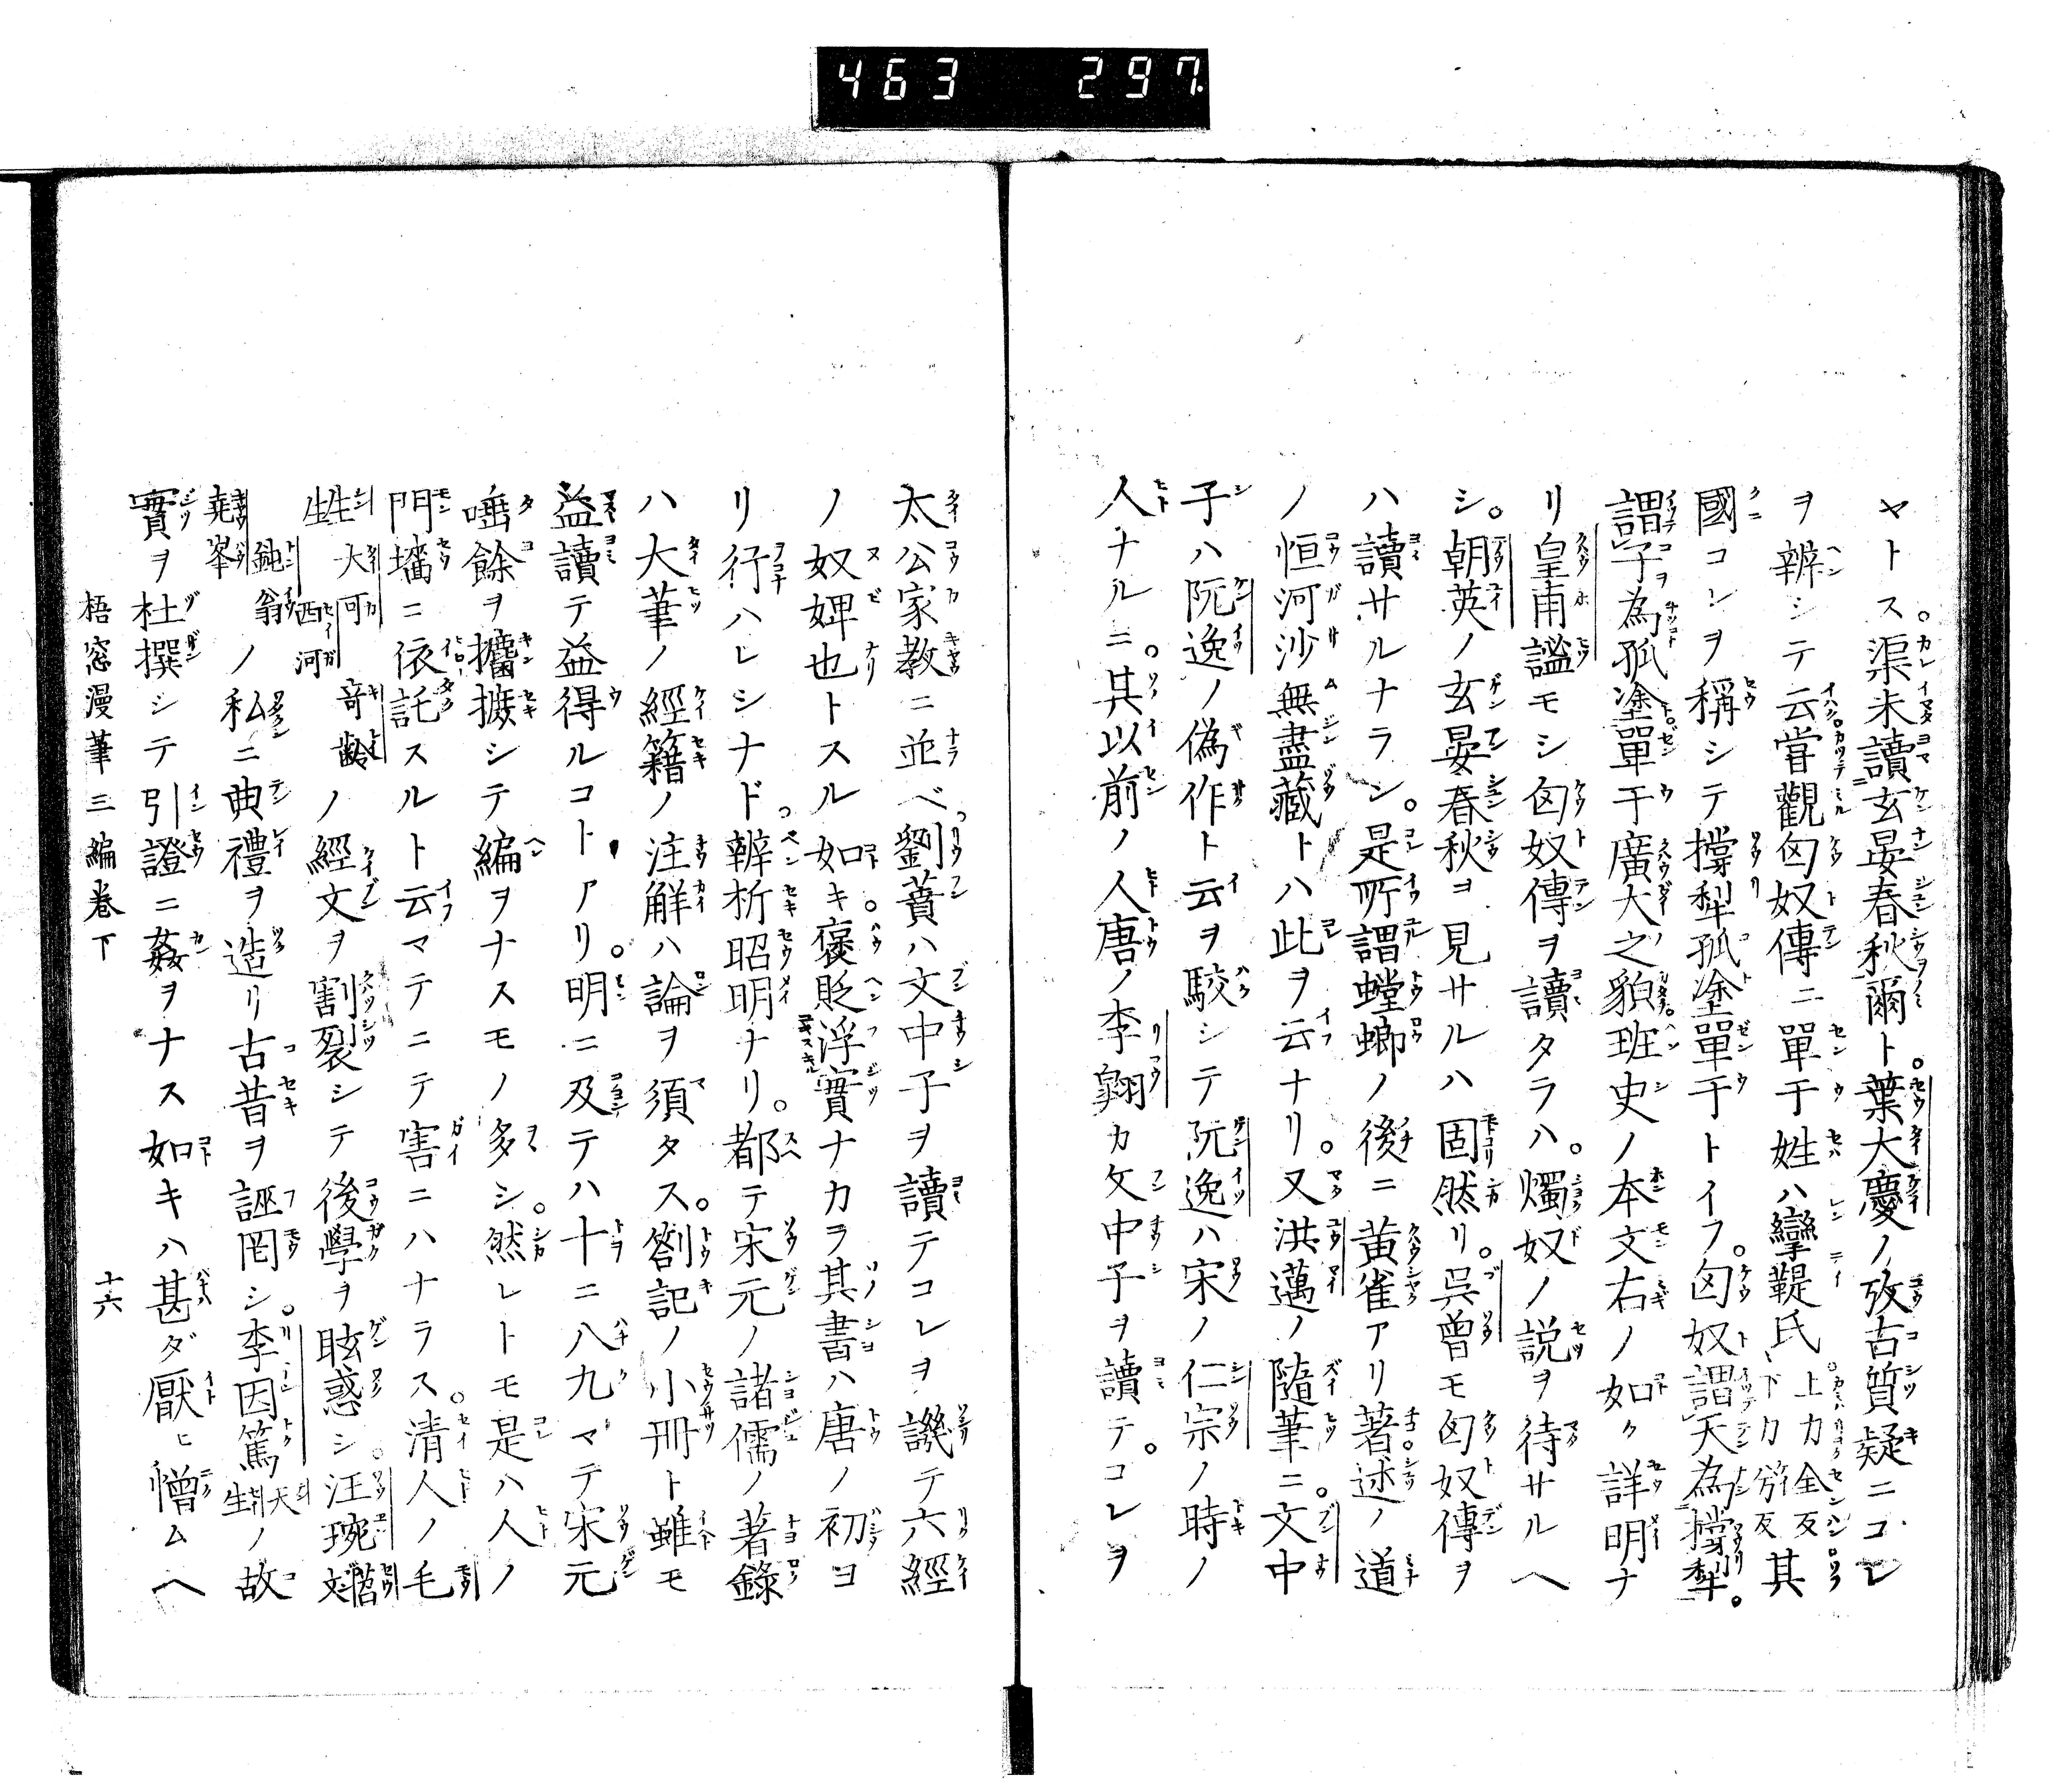 463 297
ヤトス渠未讀玄晏春秋爾ト葉大慶ノ攷古質疑ニコレ
ヲ辨シテ云甞觀匈奴傳ニ單于姓ハ攣鞮氏上力全反下力丂反其
國コレヲ稱シテ撐犁孤塗單于トイフ匈奴謂天為撐犁。
謂子為孤塗單于廣大之貌班史ノ本文右ノ如ク詳明ナ
リ皇甫謐モシ匈奴傳ヲ讀タラハ。燭奴ノ説ヲ待サルヘ
シ。朝英ノ玄晏春秋ヲ見サルハ固然リ。呉曽モ匈奴傳ヲ
ハ讀サルナラン。是所謂螳螂ノ後ニ黄雀アリ著述ノ道
ノ恒河沙無盡藏トハ此ヲ云ナリ。又洪邁ノ隨筆ニ。文中
子ハ阮逸ノ偽作ト云ヲ駮シテ阮逸ハ宋ノ仁宗ノ時ノ
人ナルニ。其以前ノ人唐ノ李翺カ文中子ヲ讀テ。コレヲ
太公家教ニ並ベ劉蕡ハ文中子ヲ讀テコレヲ譏テ六經
ノ奴婢也トスル如キ褒貶浮實ナカラ其書ハ唐ノ初ヨ
リ行ハレシナド。辨析昭明ナリ。都テ宋元ノ諸儒ノ著録
ハ大筆ノ經籍ノ注解ハ論ヲ須タス。劄記ノ小冊ト雖モ
益讀テ益得ルコトアリ。明ニ及テハ十ニ八九マテ宋元
唾餘ヲ攟摭シテ編ヲナスモノ多シ。然レトモ是ハ人ノ
門墻ニ依託スルト云マテニテ害ニハナラス。清人ノ毛
甡大可西河竒齡ノ經文ヲ割裂シテ後學ヲ眩惑シ汪琬苕文
堯峯鈍翁ノ私ニ典禮ヲ造リ古昔ヲ誣罔シ。李因篤天生ノ故
實ヲ杜撰シテ引證ニ姦ヲナス如キハ甚ダ厭ヒ憎ムヘ
梧窓漫筆三編巻下 十六